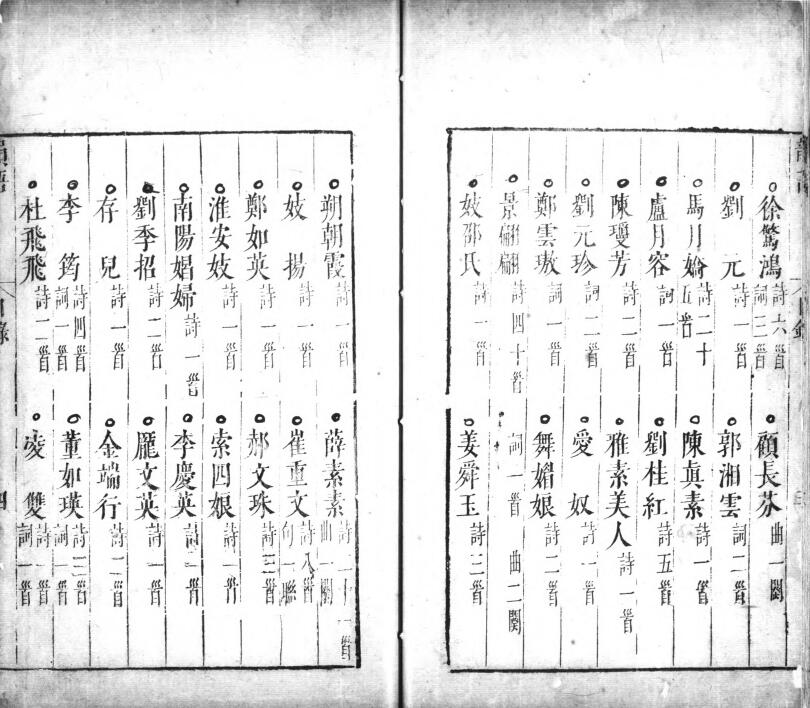 徐驚鴻 詩六首 詞三首 顧長芬 曲一闋
劉元 詩一首 郭湘雲 詞二首
馬月嬌 詩二十五首 陳眞素 詩一首
盧月容 詞一首 劉桂紅 詩五首
陳瓊芳 詩二首 雅素美人 詩一首
劉元珍 詞二首 愛奴 詩一首
鄭雲璈 詞一首 舞媚娘 詩二首
景翩翩 詩四十首 詞一首 曲二闋
妓邵氏 詩一首 姜舜玉 詩三首
朔朝霞 詩一首 薛素素 詩二十一首 曲一闋
妓揚 詩一首 崔重文 詩八首 句一聯
鄭如英 詩二首 郝文珠 詩三首
淮安妓 詩一首 索四娘 詩一首
南陽娼婦 詩一首 李慶英 詩一首
劉季招 詩二首 龎文英 詩一首
存兒 詩一首 金端行 詩二首
李筠 詩四首 詞一首 董如瑛 詩三首 詞一首
杜飛飛 詩二首 凌雙 詩一首 詞一首
目錄
四